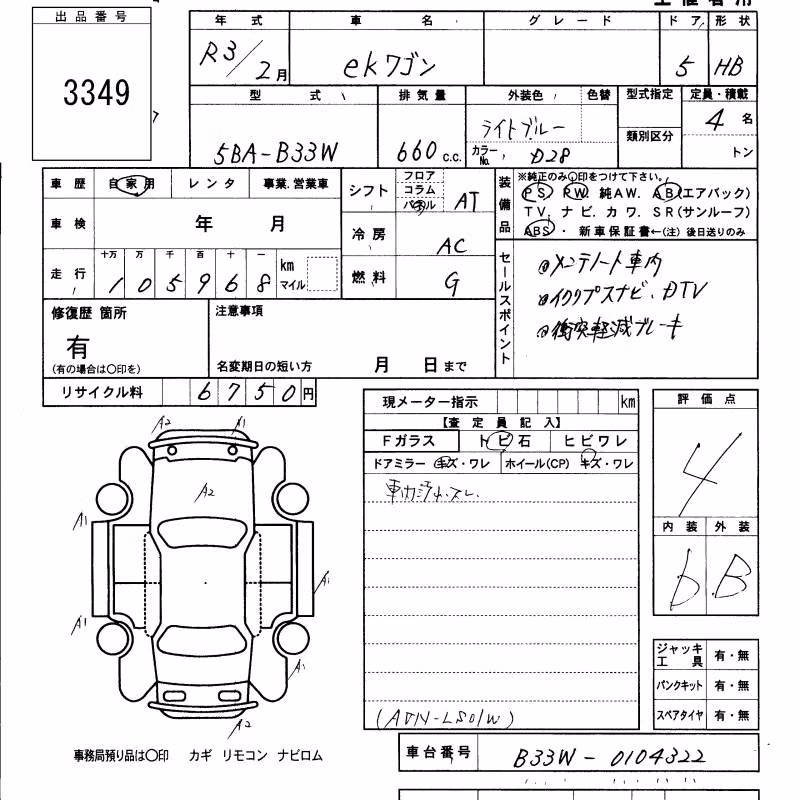 出品番号
3349
年式 車名 グレード ドア 形状
R3/2月 ekワゴン 5 HB
型式 排気量 外装色 色替 型式指定 定員・積載
5BA-B33W 660 c.c. ライトブルー カラーNo. D28 類別区分 4名
トン
車歴 自家用 レンタ 事業.営業車
車検 年 月
走行 十万 万 千 百 十 一
105968 km マイル
シフト フロア コラム パネル AT
冷房 AC
燃料 G
装備品 ※純正のみ〇印をつけて下さい。
PS PW. 純AW. AB(エアバック)
TV. ナビ. カワ. SR(サンルーフ)
ABS ・ 新車保証書←(注) 後日送りのみ
セールスポイント
◎メンテノート車内
◎イクリプスナビ、DTV
◎衝突軽減ブレーキ
修復歴 箇所
有
(有の場合は〇印を)
注意事項
名変期日の短い方 月 日まで
リサイクル料 6750円
現メーター指示 km
【査定員記入】
Fガラス トビ石 ヒビワレ
ドアミラー キズ・ワレ ホイール(CP) キズ・ワレ
(ADN-LS01W)
評価点
4
内装 外装
b B
A2 A1
A2
A1
A1
A1
A1
A2
ジャッキ工具 有・無
パンクキット 有・無
スペアタイヤ 有・無
事務局預り品は〇印 カギ リモコン ナビロム
車台番号 B33W-0104322